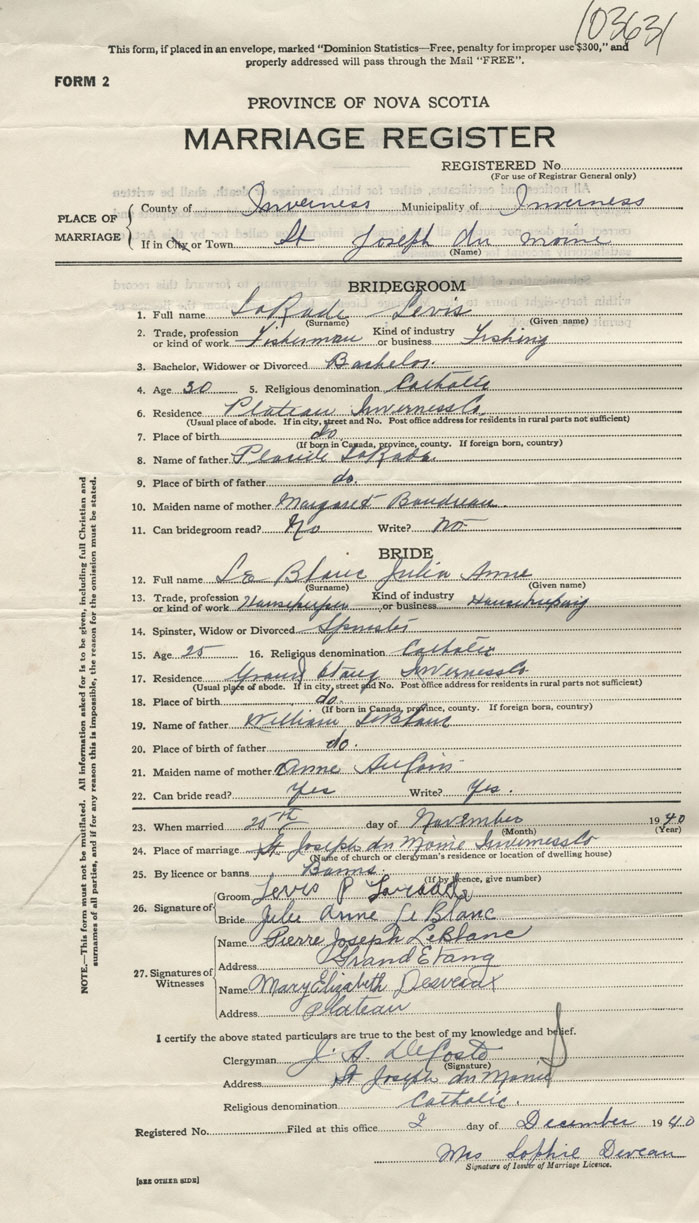 103631
This form, if placed in an envelope, marked "Dominion Statistics—Free, penalty for improper use $300," and
properly addressed will pass through the Mail "FREE".
FORM 2
PROVINCE OF NOVA SCOTIA
MARRIAGE REGISTER
REGISTERED No.
(For use of Registrar General only)
PLACE OF MARRIAGE
County of Inverness Municipality of Inverness
If in City or Town St Joseph du Moine
(Name)
BRIDEGROOM
1. Full name LaRade Levis
(Surname) (Given name)
2. Trade, profession or kind of work Fisherman Kind of industry or business Fishing
3. Bachelor, Widower or Divorced Bachelor
4. Age 30 5. Religious denomination Catholic
6. Residence Plateau Inverness Co
(Usual place of abode. If in city, street and No. Post office address for residents in rural parts not sufficient)
7. Place of birth do
(If born in Canada, province, county. If foreign born, country)
8. Name of father Placide LaRade
9. Place of birth of father do.
10. Maiden name of mother Margaret Boudreau
11. Can bridegroom read? No Write? No
BRIDE
12. Full name Le Blanc Julia Anne
(Surname) (Given name)
13. Trade, profession or kind of work Housekeeper Kind of industry or business Housekeeping
14. Spinster, Widow or Divorced Spinster
15. Age 25 16. Religious denomination Catholic
17. Residence Grand Etang Inverness Co
(Usual place of abode. If in city, street and No. Post office address for residents in rural parts not sufficient)
18. Place of birth do.
(If born in Canada, province, county. If foreign born, country)
19. Name of father William LeBlanc
20. Place of birth of father do.
21. Maiden name of mother Anne AuCoin
22. Can bride read? Yes Write? Yes.
23. When married 25th day of November 1940
(Month) (Year)
24. Place of marriage St Joseph du Moine Inverness Co
(Name of church or clergyman's residence or location of dwelling house)
25. By licence or banns Banns
(If by licence, give number)
26. Signature of
Groom Levis P Larade
Bride Julie Anne Le Blanc
27. Signatures of Witnesses
Name Pierre Joseph LeBlanc
Address Grand Etang
Name Mary Elizabeth Desveaux
Address Plateau
I certify the above stated particulars are true to the best of my knowledge and belief.
Clergyman J. A. DeCoste
(Signature)
Address St Joseph du Moine
Religious denomination Catholic.
Registered No. Filed at this office 2 day of December 1940
Mrs Sophie Deveau
Signature of Issuer of Marriage Licence.
[SEE OTHER SIDE]
NOTE.—This form must not be mutilated. All information asked for is to be given, including full Christian and
surnames of all parties, and if for any reason this is impossible, the reason for the omission must be stated.